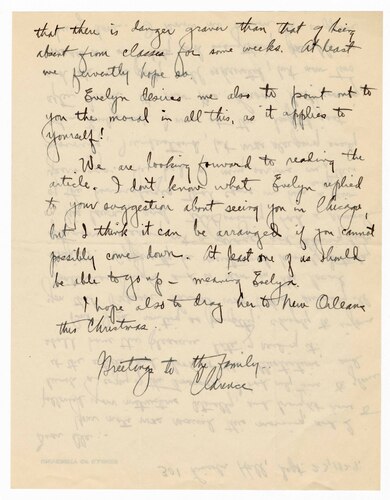 that there is danger graver than that of being
absent from classes for some weeks. At least
we fervently hope so.
Evelyn desires me also to point out to
you the moral in all this, as it applies to
yourself!
We are looking forward to reading the
article. I don't know what Evelyn replied
to your suggestion about seeing you in Chicago,
but I think it can be arranged if you cannot
possibly come down. At least one of us should
be able to go up – meaning Evelyn.
I hope also to drag her to New Orleans
this Christmas.
Greetings to the family.
Clarence
UNIVERSITY OF ILLINOIS